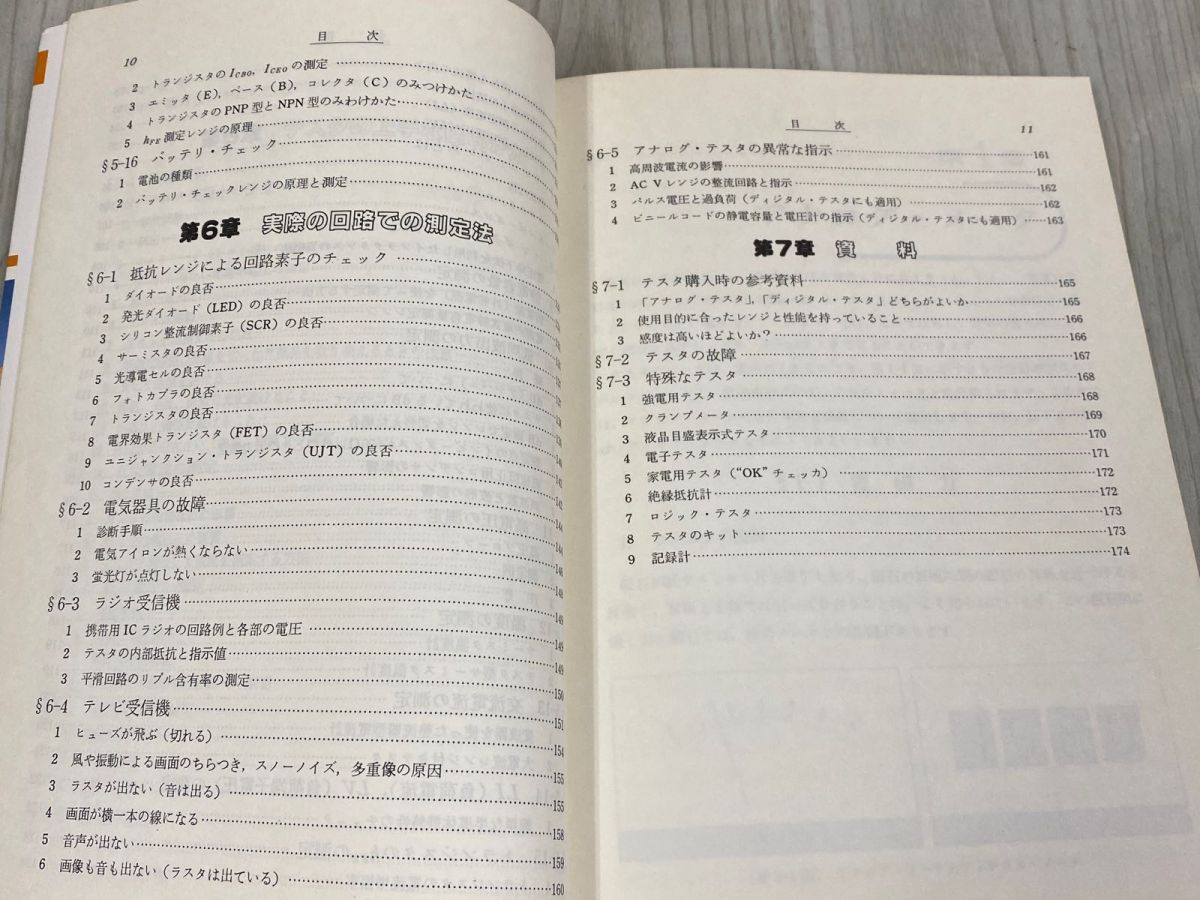 目 次
10
2 トランジスタのICBO, ICEOの測定
3 エミッタ(E), ベース(B), コレクタ(C)のみつけかた
4 トランジスタのPNP型とNPN型のみわけかた
5 hFE測定レンジの原理
§5-16 バッテリ・チェック
1 電池の種類
2 バッテリ・チェックレンジの原理と測定
第6章 実際の回路での測定法
§6-1 抵抗レンジによる回路素子のチェック
1 ダイオードの良否
2 発光ダイオード(LED)の良否
3 シリコン整流制御素子(SCR)の良否
4 サーミスタの良否
5 光導電セルの良否
6 フォトカプラの良否
7 トランジスタの良否
8 電界効果トランジスタ(FET)の良否
9 ユニジャンクション・トランジスタ(UJT)の良否
10 コンデンサの良否
§6-2 電気器具の故障
1 診断手順
2 電気アイロンが熱くならない
3 蛍光灯が点灯しない
§6-3 ラジオ受信機 149
1 携帯用ICラジオの回路例と各部の電圧 149
2 テスタの内部抵抗と指示値 149
3 平滑回路のリプル含有率の測定 150
§6-4 テレビ受信機 151
1 ヒューズが飛ぶ(切れる) 154
2 風や振動による画面のちらつき, スノーノイズ, 多重像の原因 155
3 ラスタが出ない(音は出る) 155
4 画面が横一本の線になる 158
5 音声が出ない 159
6 画像も音も出ない(ラスタは出ている) 160
目 次
11
§6-5 アナログ・テスタの異常な指示 161
1 高周波電流の影響 161
2 AC Vレンジの整流回路と指示 162
3 パルス電圧と過負荷(ディジタル・テスタにも適用) 162
4 ビニールコードの静電容量と電圧計の指示(ディジタル・テスタにも適用) 163
第7章 資 料
§7-1 テスタ購入時の参考資料 165
1 「アナログ・テスタ」,「ディジタル・テスタ」どちらがよいか 165
2 使用目的に合ったレンジと性能を持っていること 166
3 感度は高いほどよいか? 166
§7-2 テスタの故障 167
§7-3 特殊なテスタ 168
1 強電用テスタ 168
2 クランプメータ 169
3 液晶目盛表示式テスタ 170
4 電子テスタ 171
5 家電用テスタ(“OK”チェッカ) 172
6 絶縁抵抗計 172
7 ロジック・テスタ 173
8 テスタのキット 173
9 記録計 174